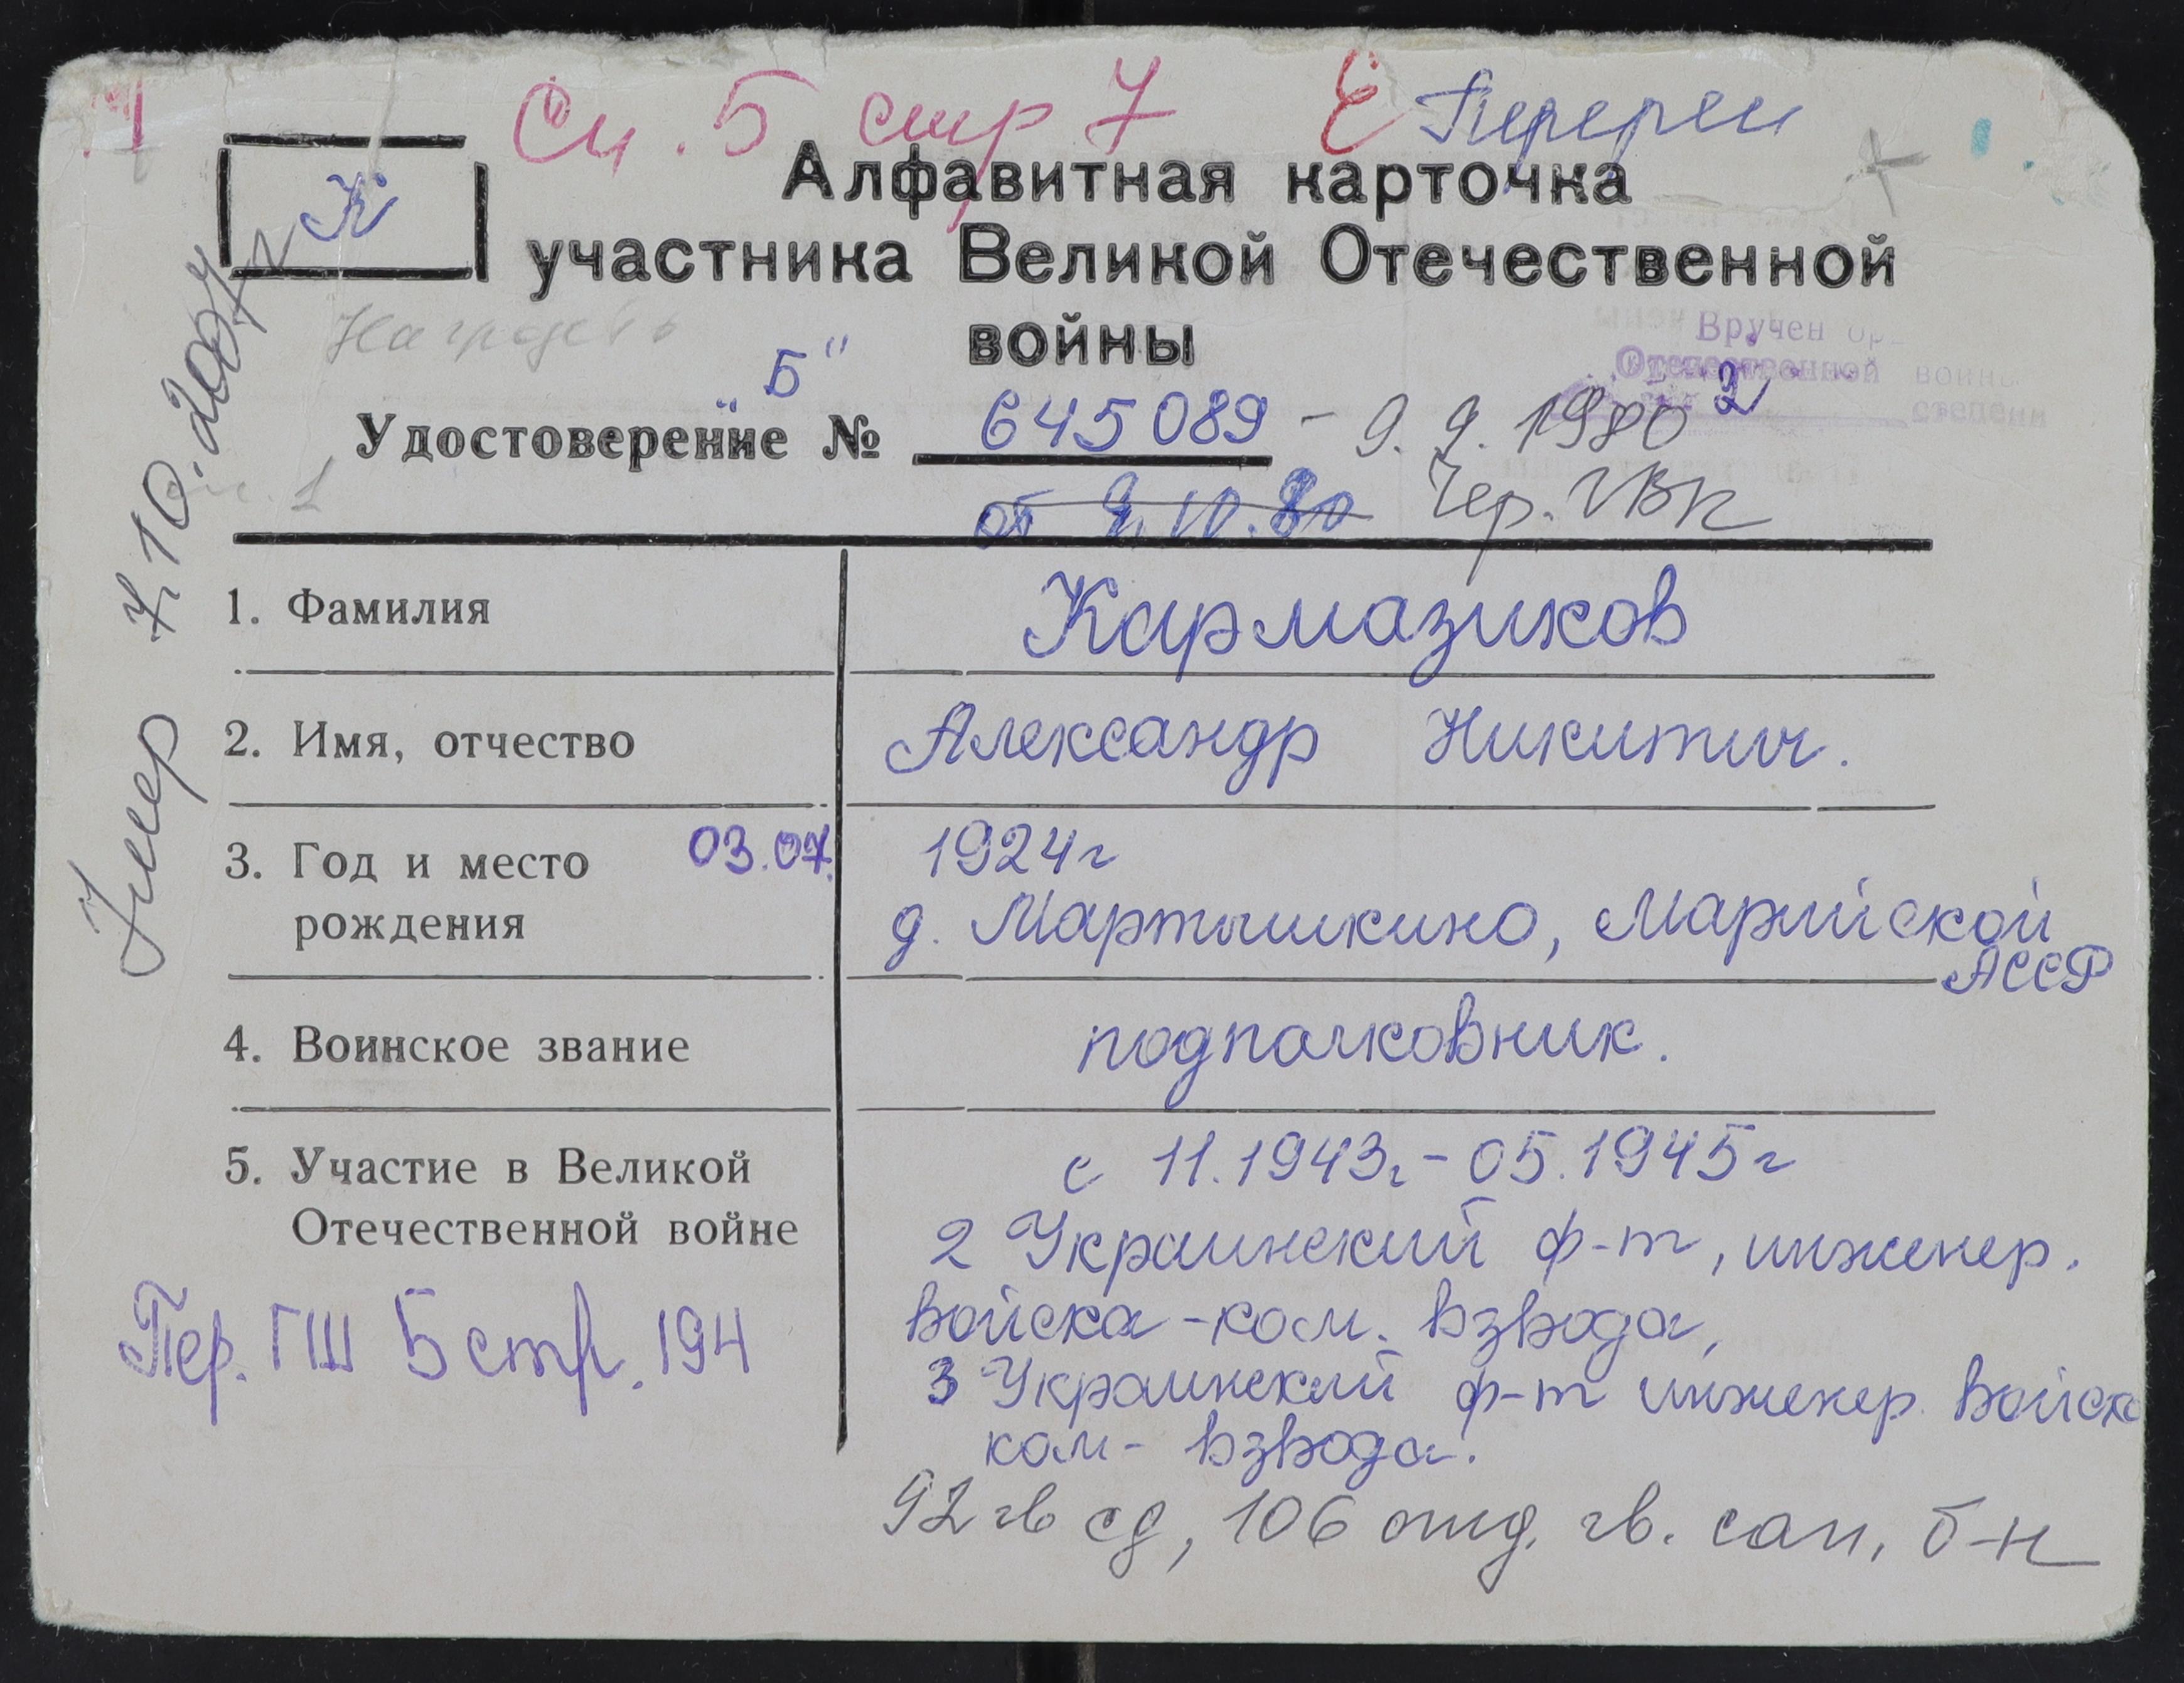 Сп. 5 стр 7 Е Перерег
К
Алфавитная карточка
участника Великой Отечественной
войны
Вручен ор
Отечественной войны
2 степени
"Б"
Удостоверение № 645089 - 9.9.1980
от 9.10.80 Чер. ГВК
Умер 7.10.2007г
1. Фамилия Кармазиков
2. Имя, отчество Александр Никитич.
3. Год и место рождения 03.07. 1924г
д. Мартышкино, Марийской
АССР
4. Воинское звание подполковник.
5. Участие в Великой Отечественной войне с 11.1943г - 05.1945г
2 Украинский ф-т, инженер.
войска - ком. взвода,
3 Украинский ф-т инженер. войска
ком - взвода.
92 гв сд, 106 отд. гв. сап. б-н
Пер. ГШ 5 стр. 194